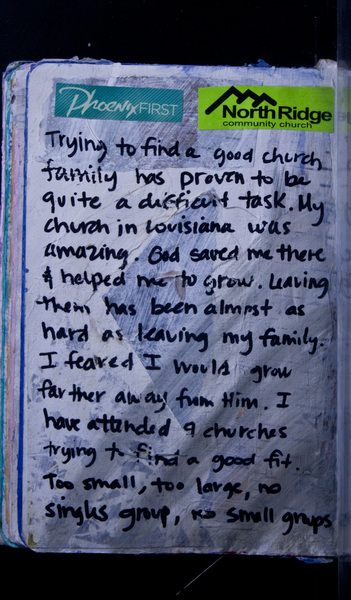 PhoenixFIRST
NorthRidge
community church
Trying to find a good church
family has proven to be
quite a difficult task. My
church in Louisiana was
amazing. God saved me there
& helped me to grow. Leaving
them has been almost as
hard as leaving my family.
I feared I would grow
farther away from Him. I
have attended 9 churches
trying to find a good fit.
Too small, too large, no
singles group, no small groups